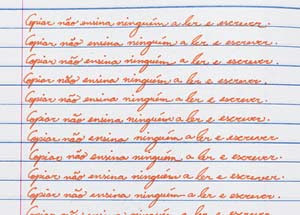 Copiar não ensina ninguém a ler e escrever.
Copiar não ensina ninguém a ler e escrever.
Copiar não ensina ninguém a ler e escrever.
Copiar não ensina ninguém a ler e escrever.
Copiar não ensina ninguém a ler e escrever.
Copiar não ensina ninguém a ler e escrever.
Copiar não ensina ninguém a ler e escrever.
Copiar não ensina ninguém a ler e escrever.
Copiar não ensina ninguém a ler e escrever.
Copiar não ensina ninguém a ler e escrever.